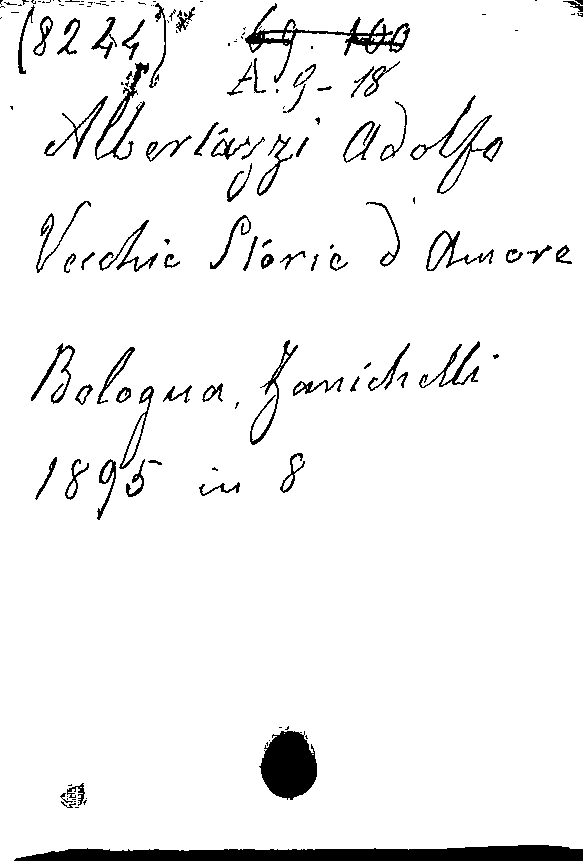 (8244) 69. 100
A. 9-18
Albertazzi Adolfo
Vecchie Storie d'Amore
Bologna, Zanichelli
1895 in 8